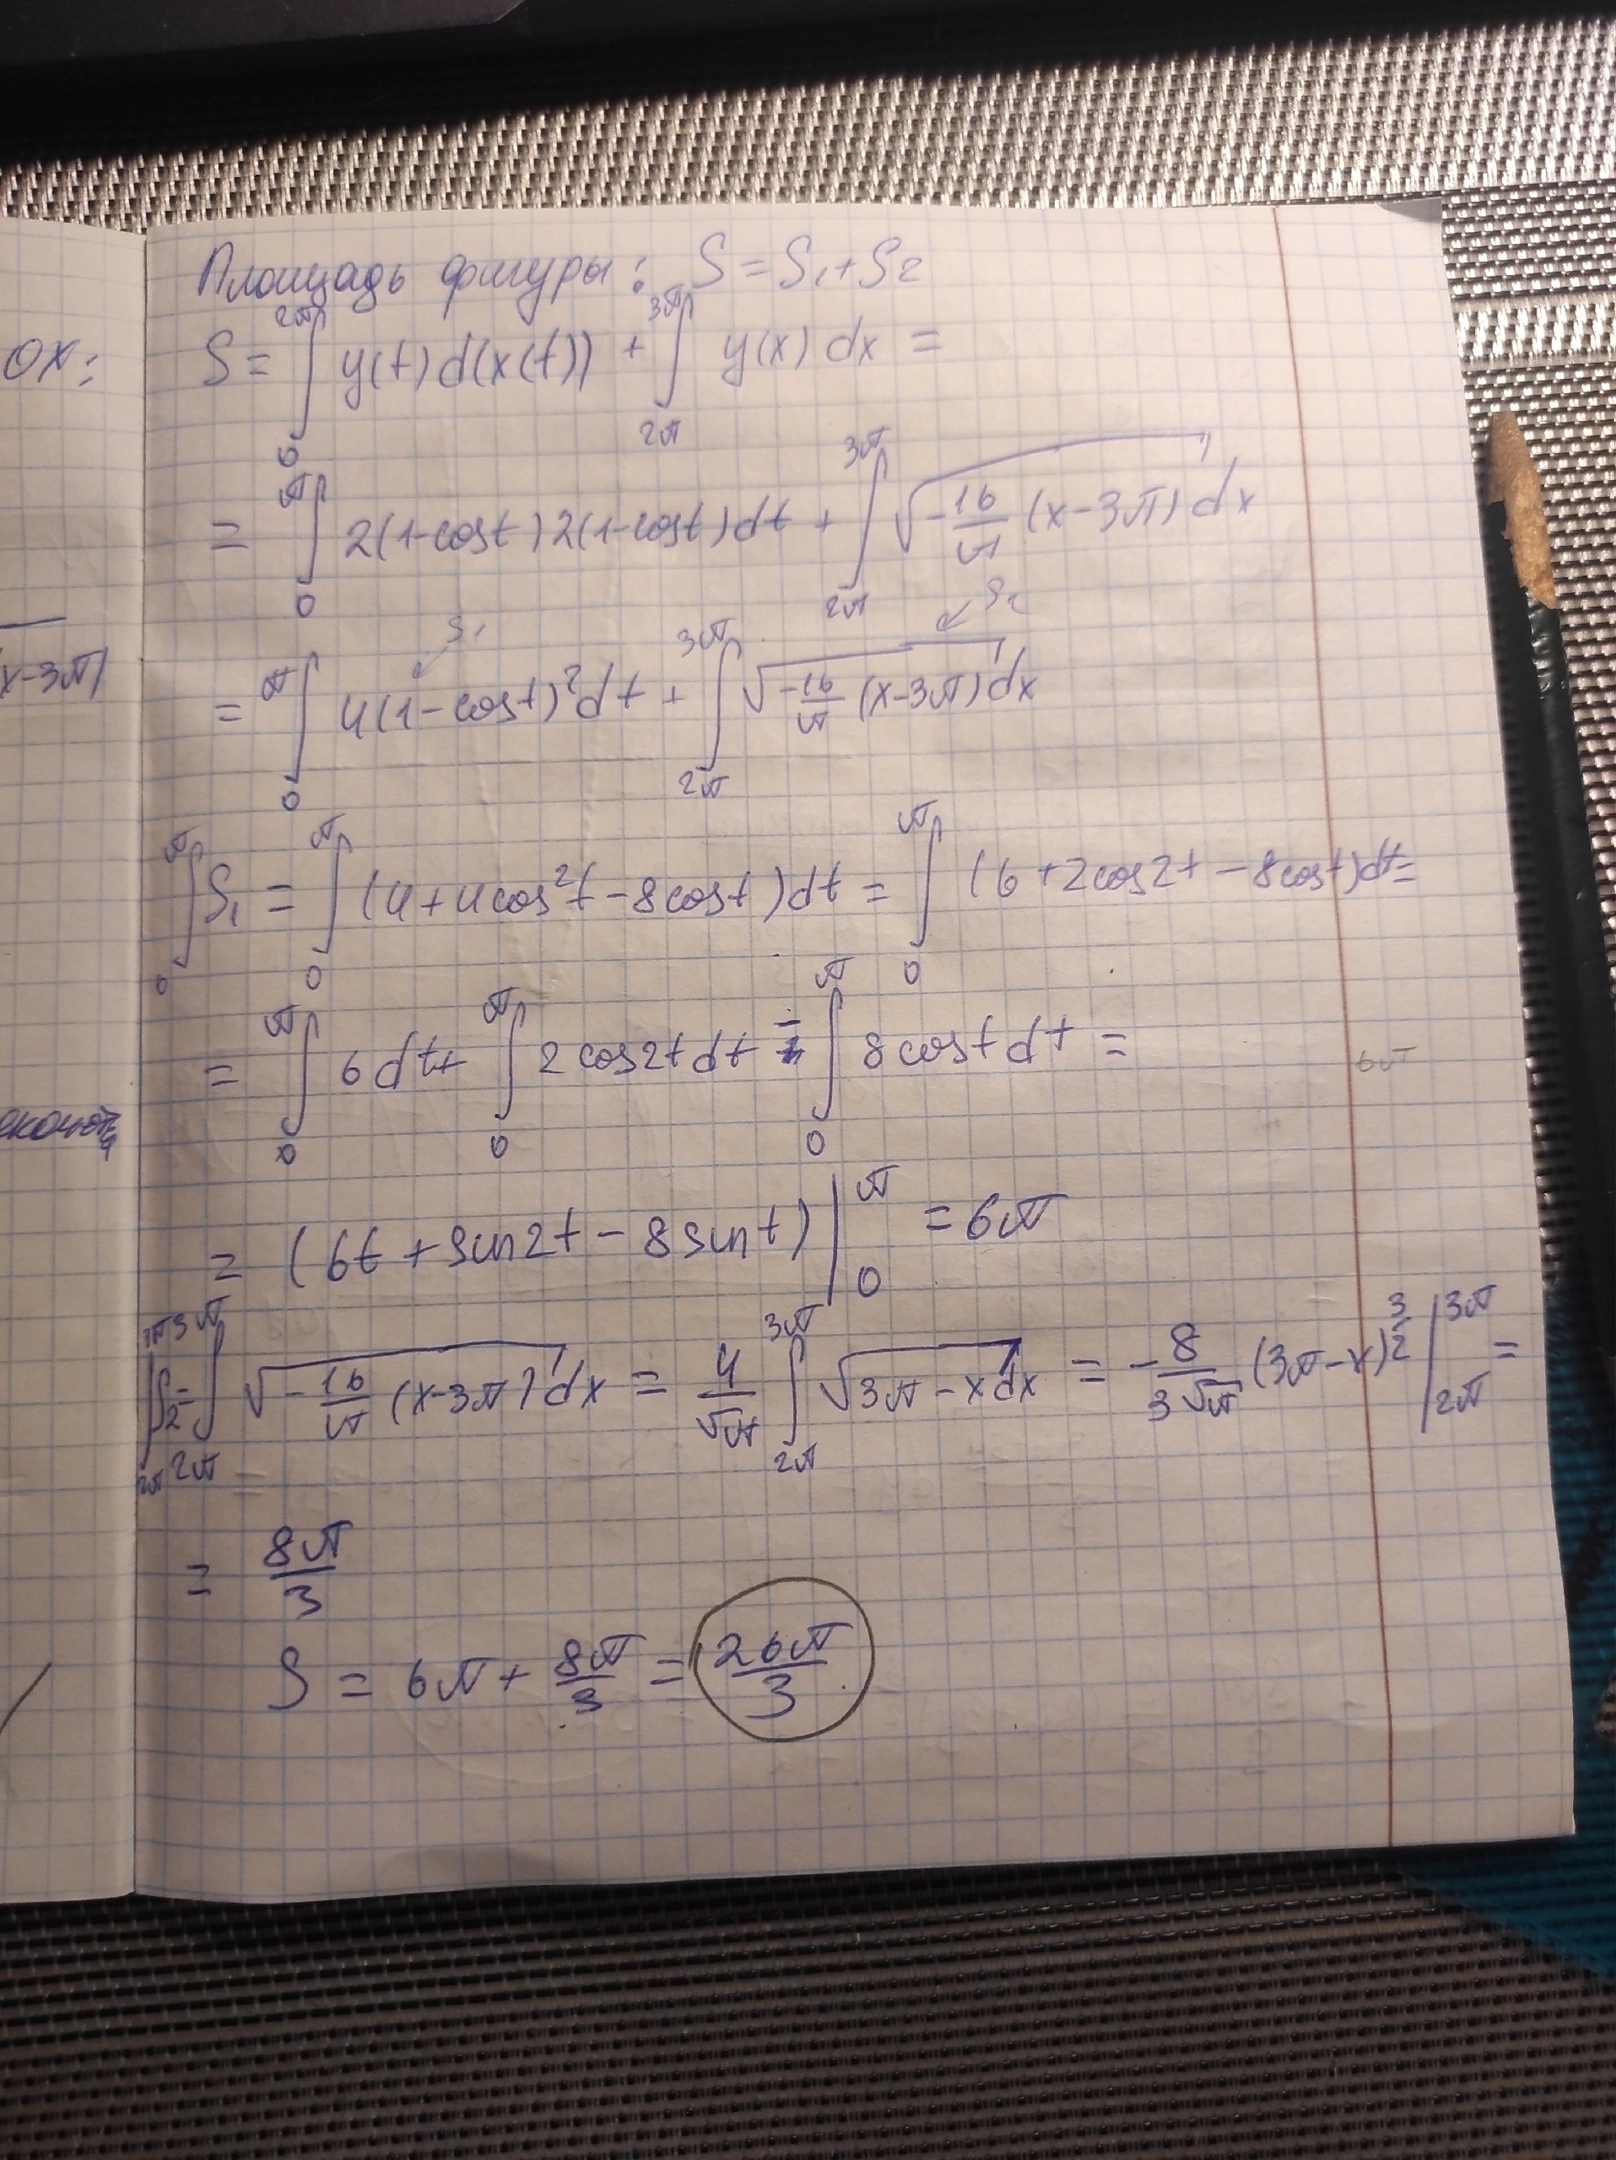 Площадь фигуры: S = S₁ + S₂
ОХ:
S = ∫₀^{2π} y(t) d(x(t)) + ∫_{2π}^{3π} y(x) dx =
= ∫₀^π 2(1-cost) 2(1-cost) dt + ∫_{2π}^{3π} √(-16/π (x-3π)) dx
S₁ S₂
x-3π)
= ∫₀^π 4(1-cost)² dt + ∫_{2π}^{3π} √(-16/π (x-3π)) dx
∫₀^π S₁ = ∫₀^π (4+4cos²t-8cost) dt = ∫₀^π (6+2cos2t-8cost) dt =
= ∫₀^π 6dt + ∫₀^π 2cos2t dt - ∫₀^π 8cost dt =
6π
= (6t + sin2t - 8sint) |₀^π = 6π
∫_{2π}^{3π} S₂ = ∫_{2π}^{3π} √(-16/π (x-3π)) dx = 4/√π ∫_{2π}^{3π} √(3π-x) dx = -8/(3√π) (3π-x)^{3/2} |_{2π}^{3π} =
= 8π/3
S = 6π + 8π/3 = 26π/3